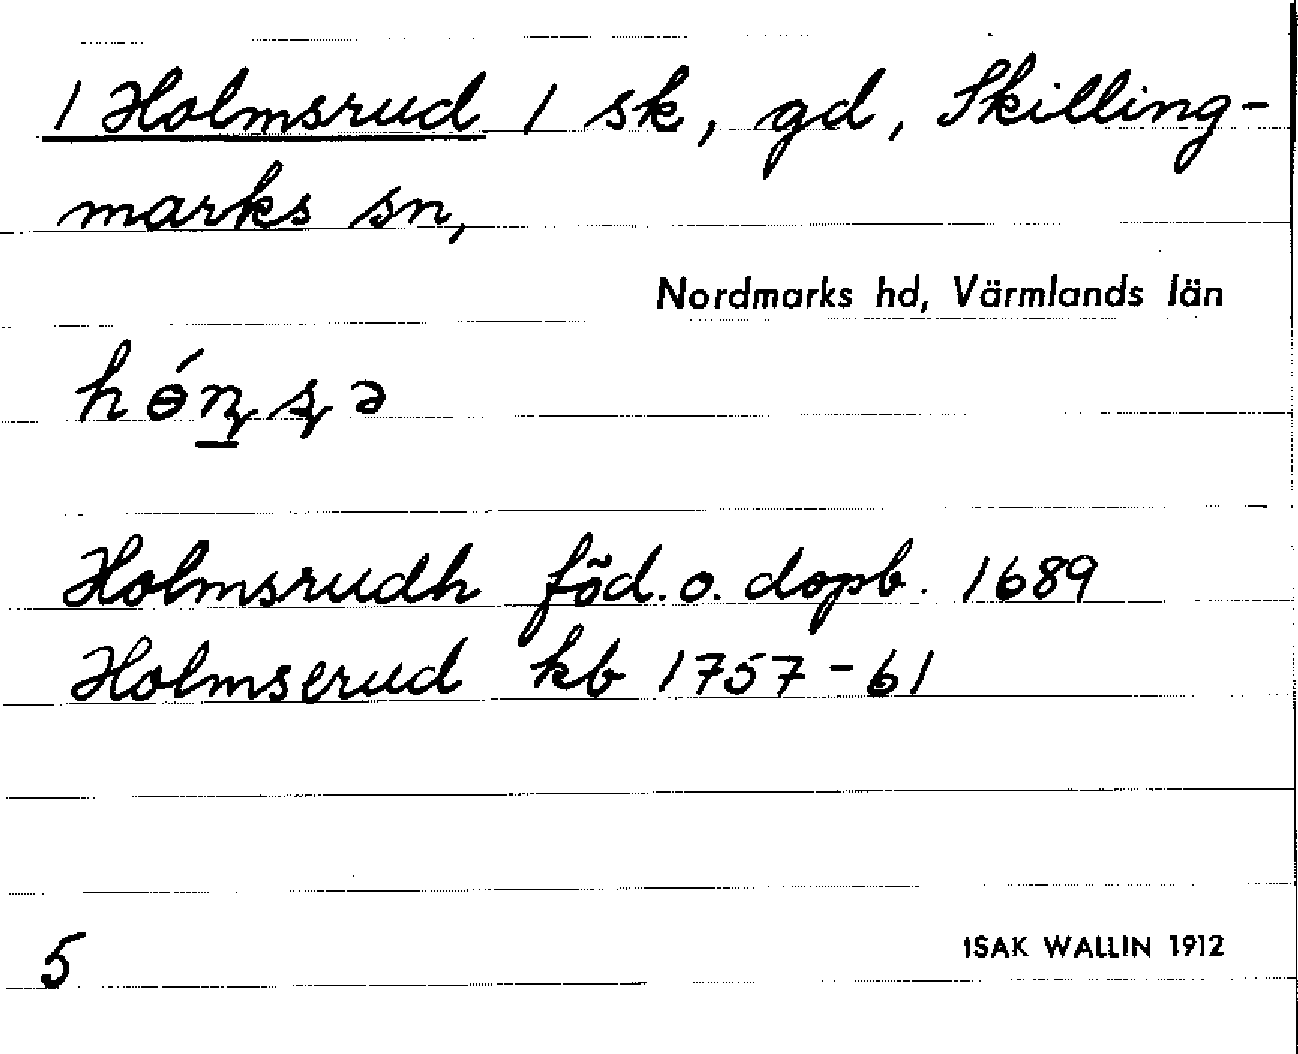 1 Holmsrud 1 sk, gd, Skilling-
marks sn,
Nordmarks hd, Värmlands län
hɵ́n̠ʂə
Holmsrudh föd. o. dopb. 1689
Holmserud kb 1757-61
5
ISAK WALLIN 1912